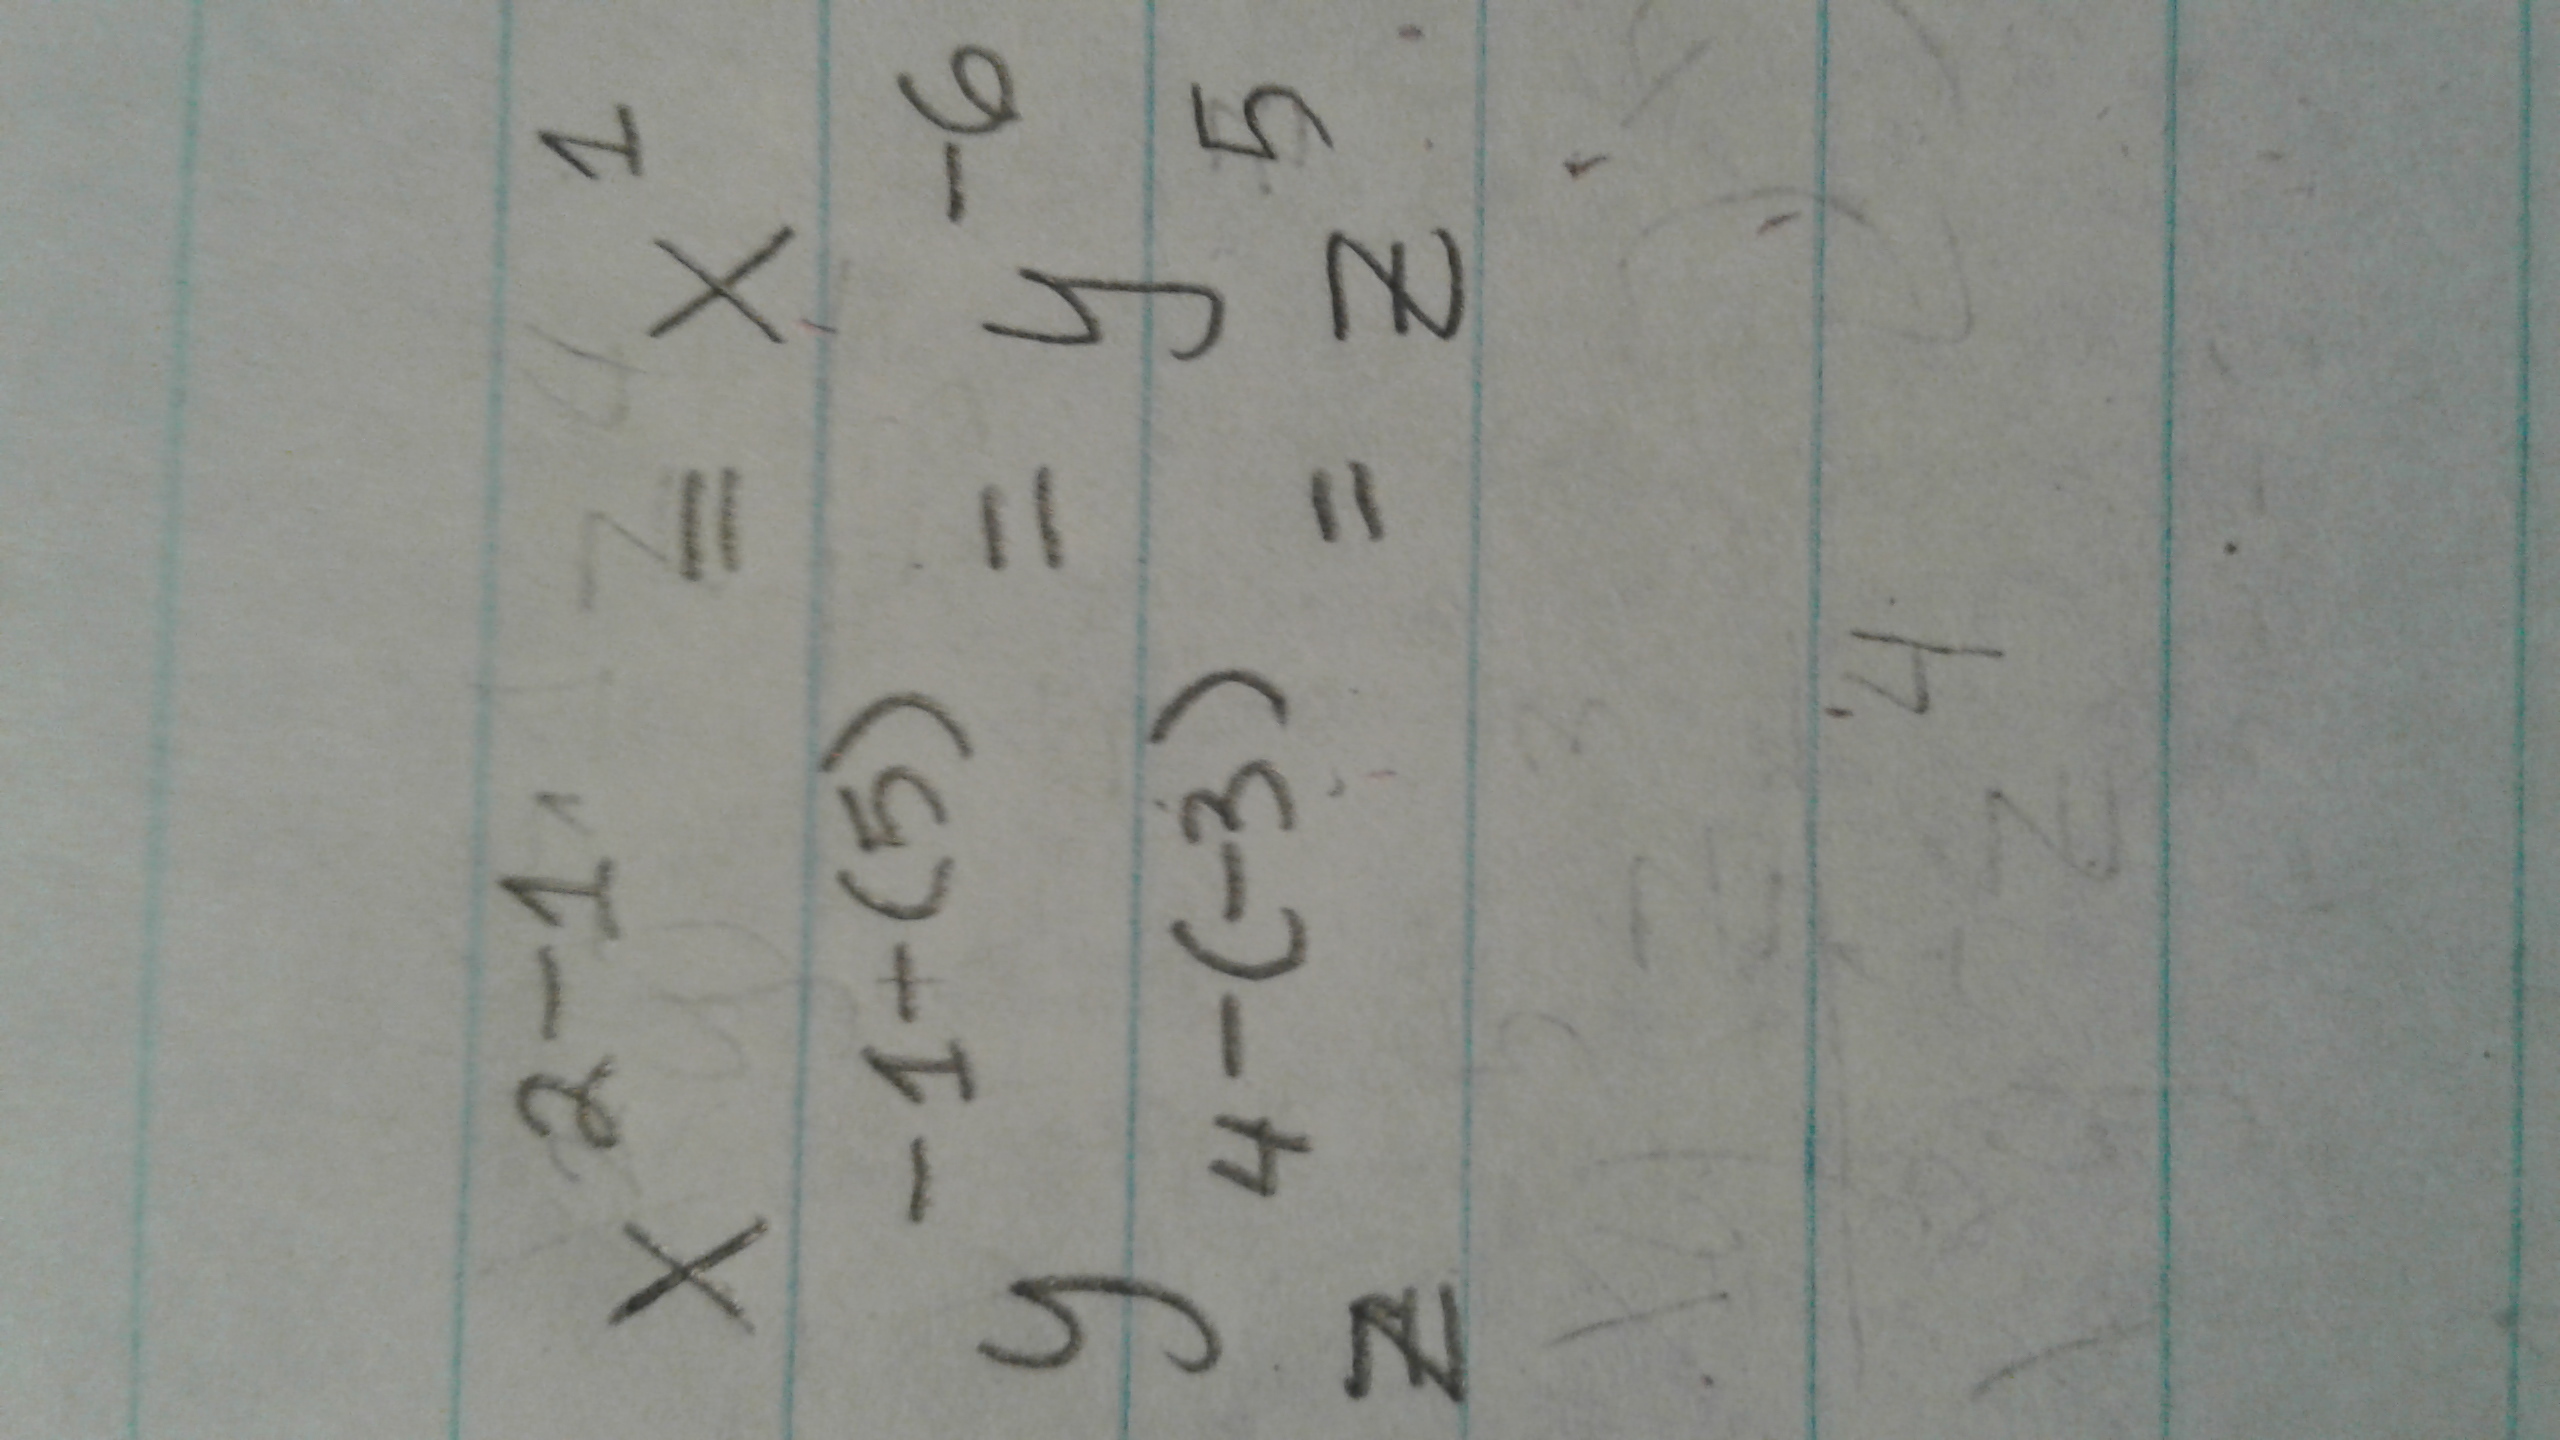 x²⁻¹ = x¹
y⁻¹⁻⁽⁵⁾ = y⁻⁶
z⁴⁻⁽⁻³⁾ = z⁵
z⁴